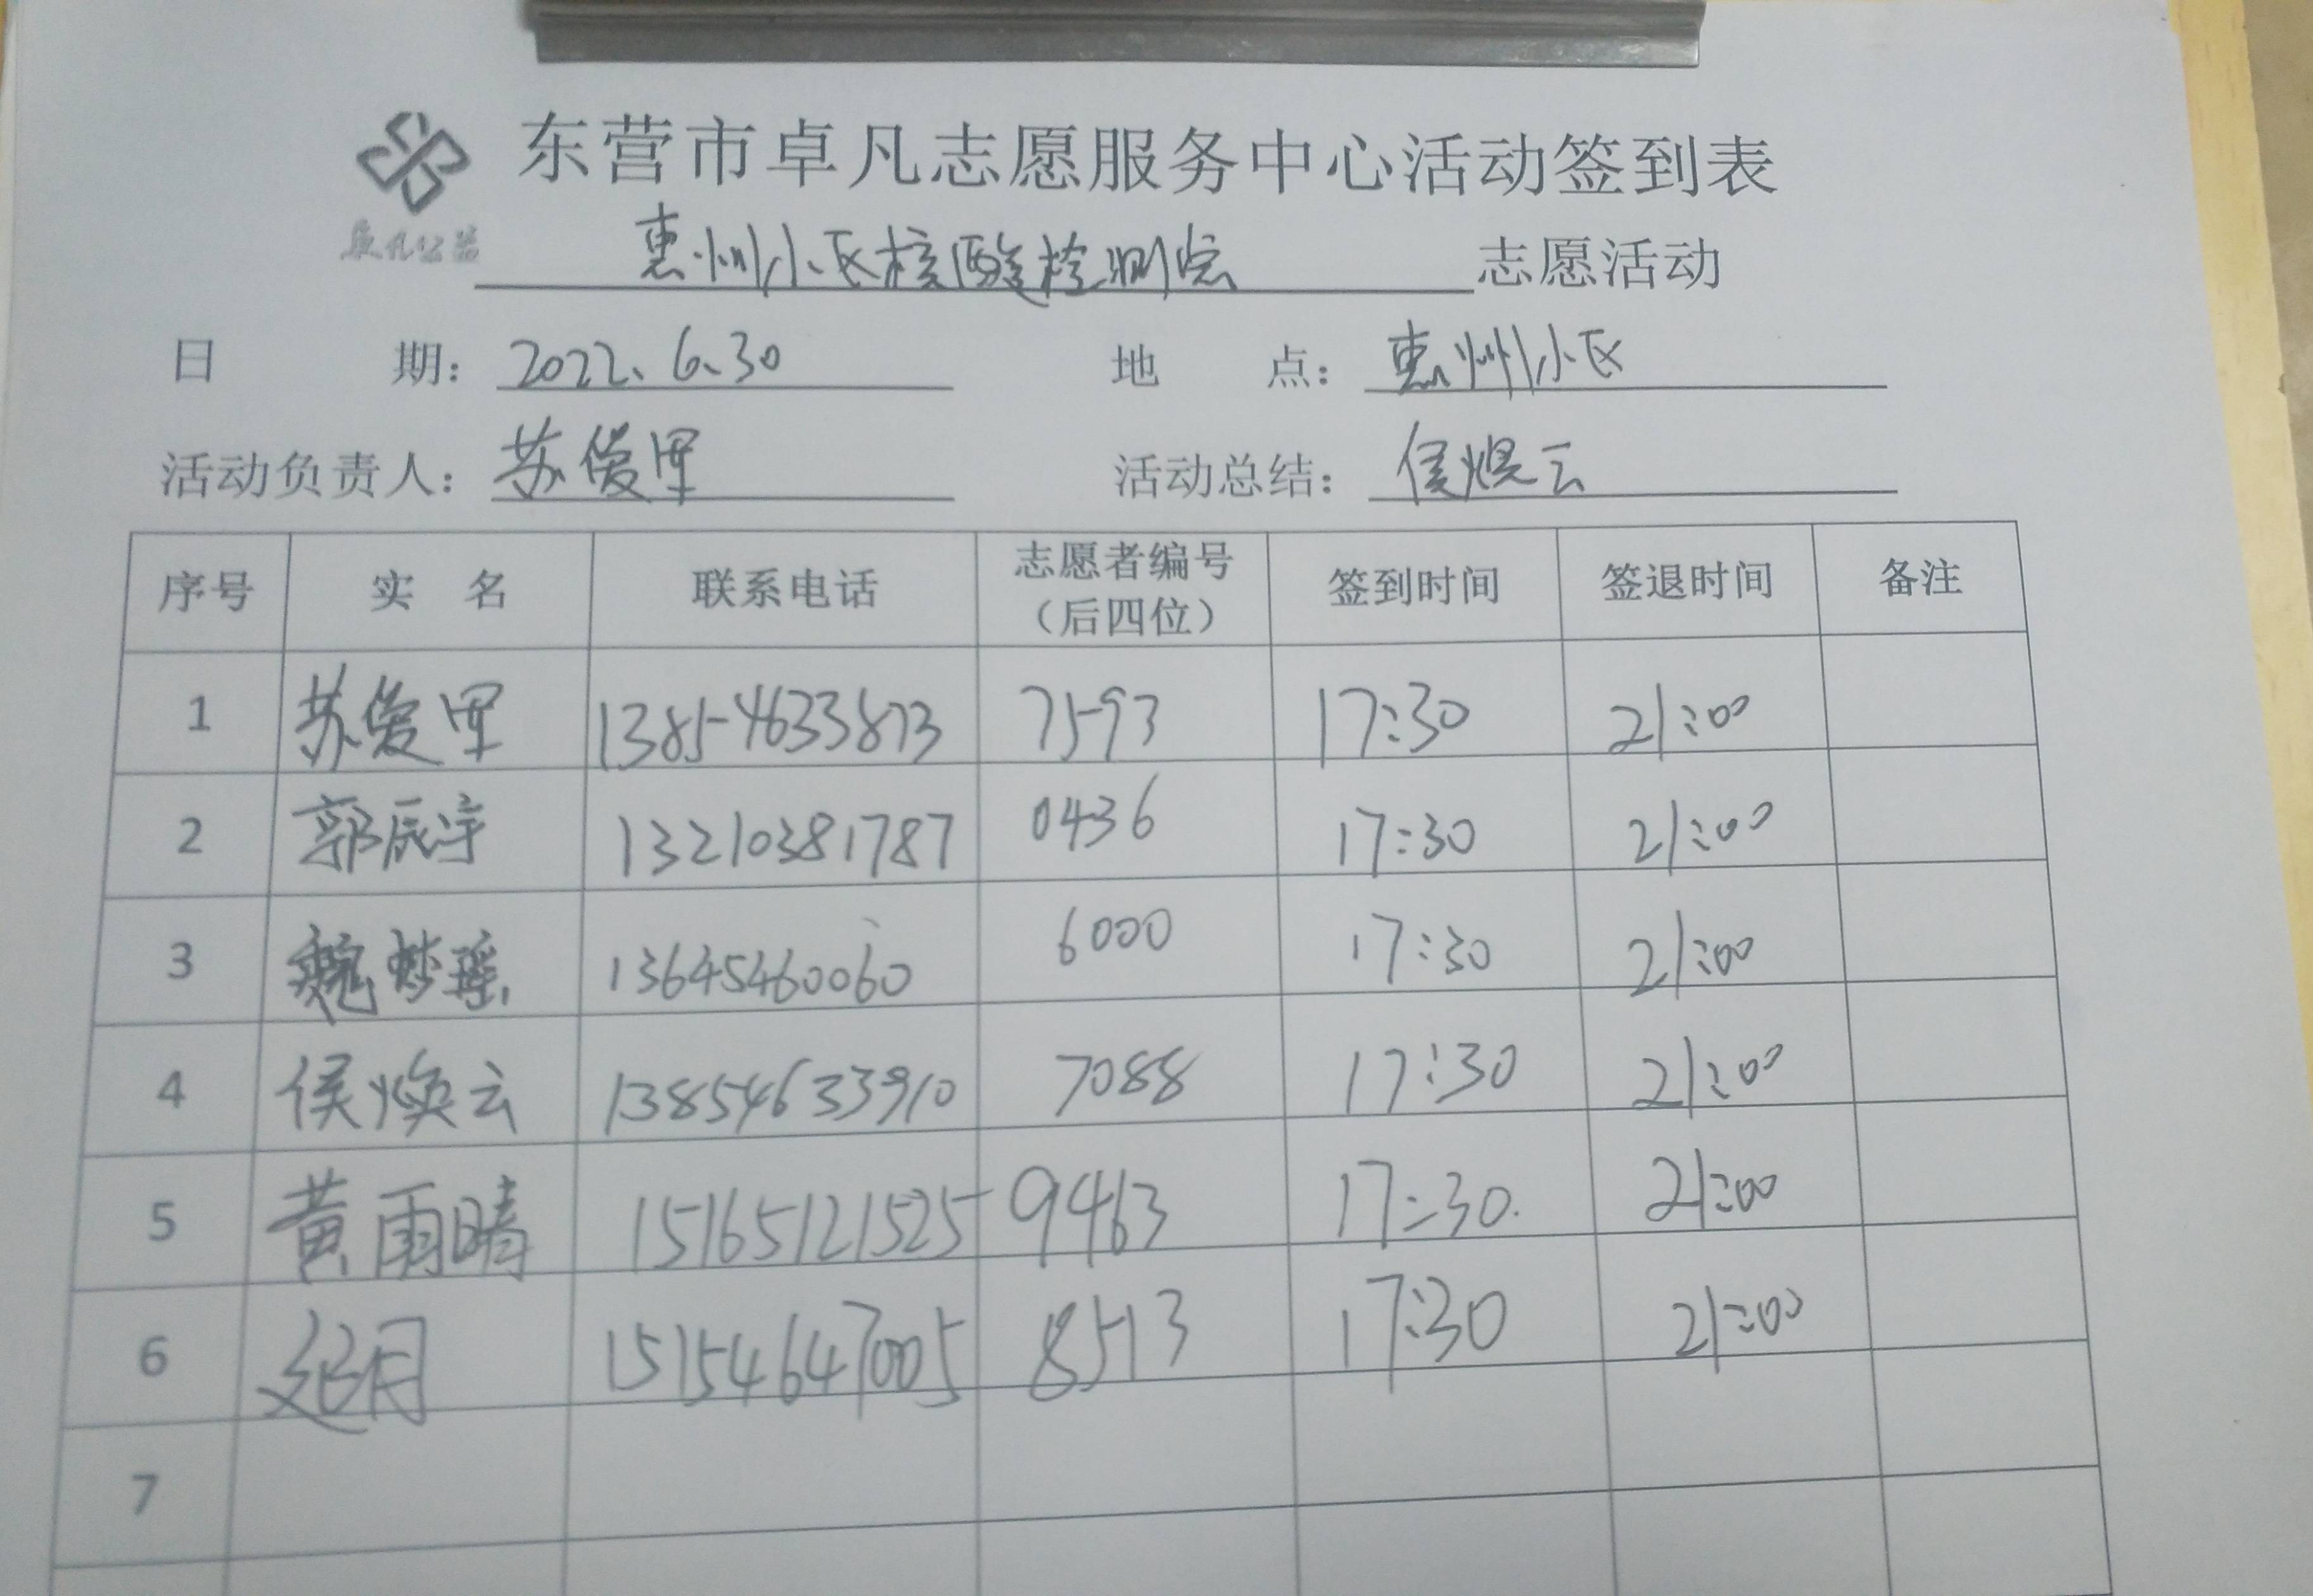 东营市卓凡志愿服务中心活动签到表
卓凡公益
惠州小区核酸检测点 志愿活动
日 期: 2022.6.30 地 点: 惠州小区
活动负责人: 苏俊军 活动总结: 侯焕云
序号 实 名 联系电话 志愿者编号 签到时间 签退时间 备注
(后四位)
1 苏俊军 13854633873 7593 17:30 21:00
2 郭辰宇 13210381787 0436 17:30 21:00
3 魏梦瑶 13645460060 6000 17:30 21:00
4 侯焕云 13854633910 7088 17:30 21:00
5 黄雨晴 15165121525 9463 17:30 21:00
6 15154647005 8513 17:30 21:00
7